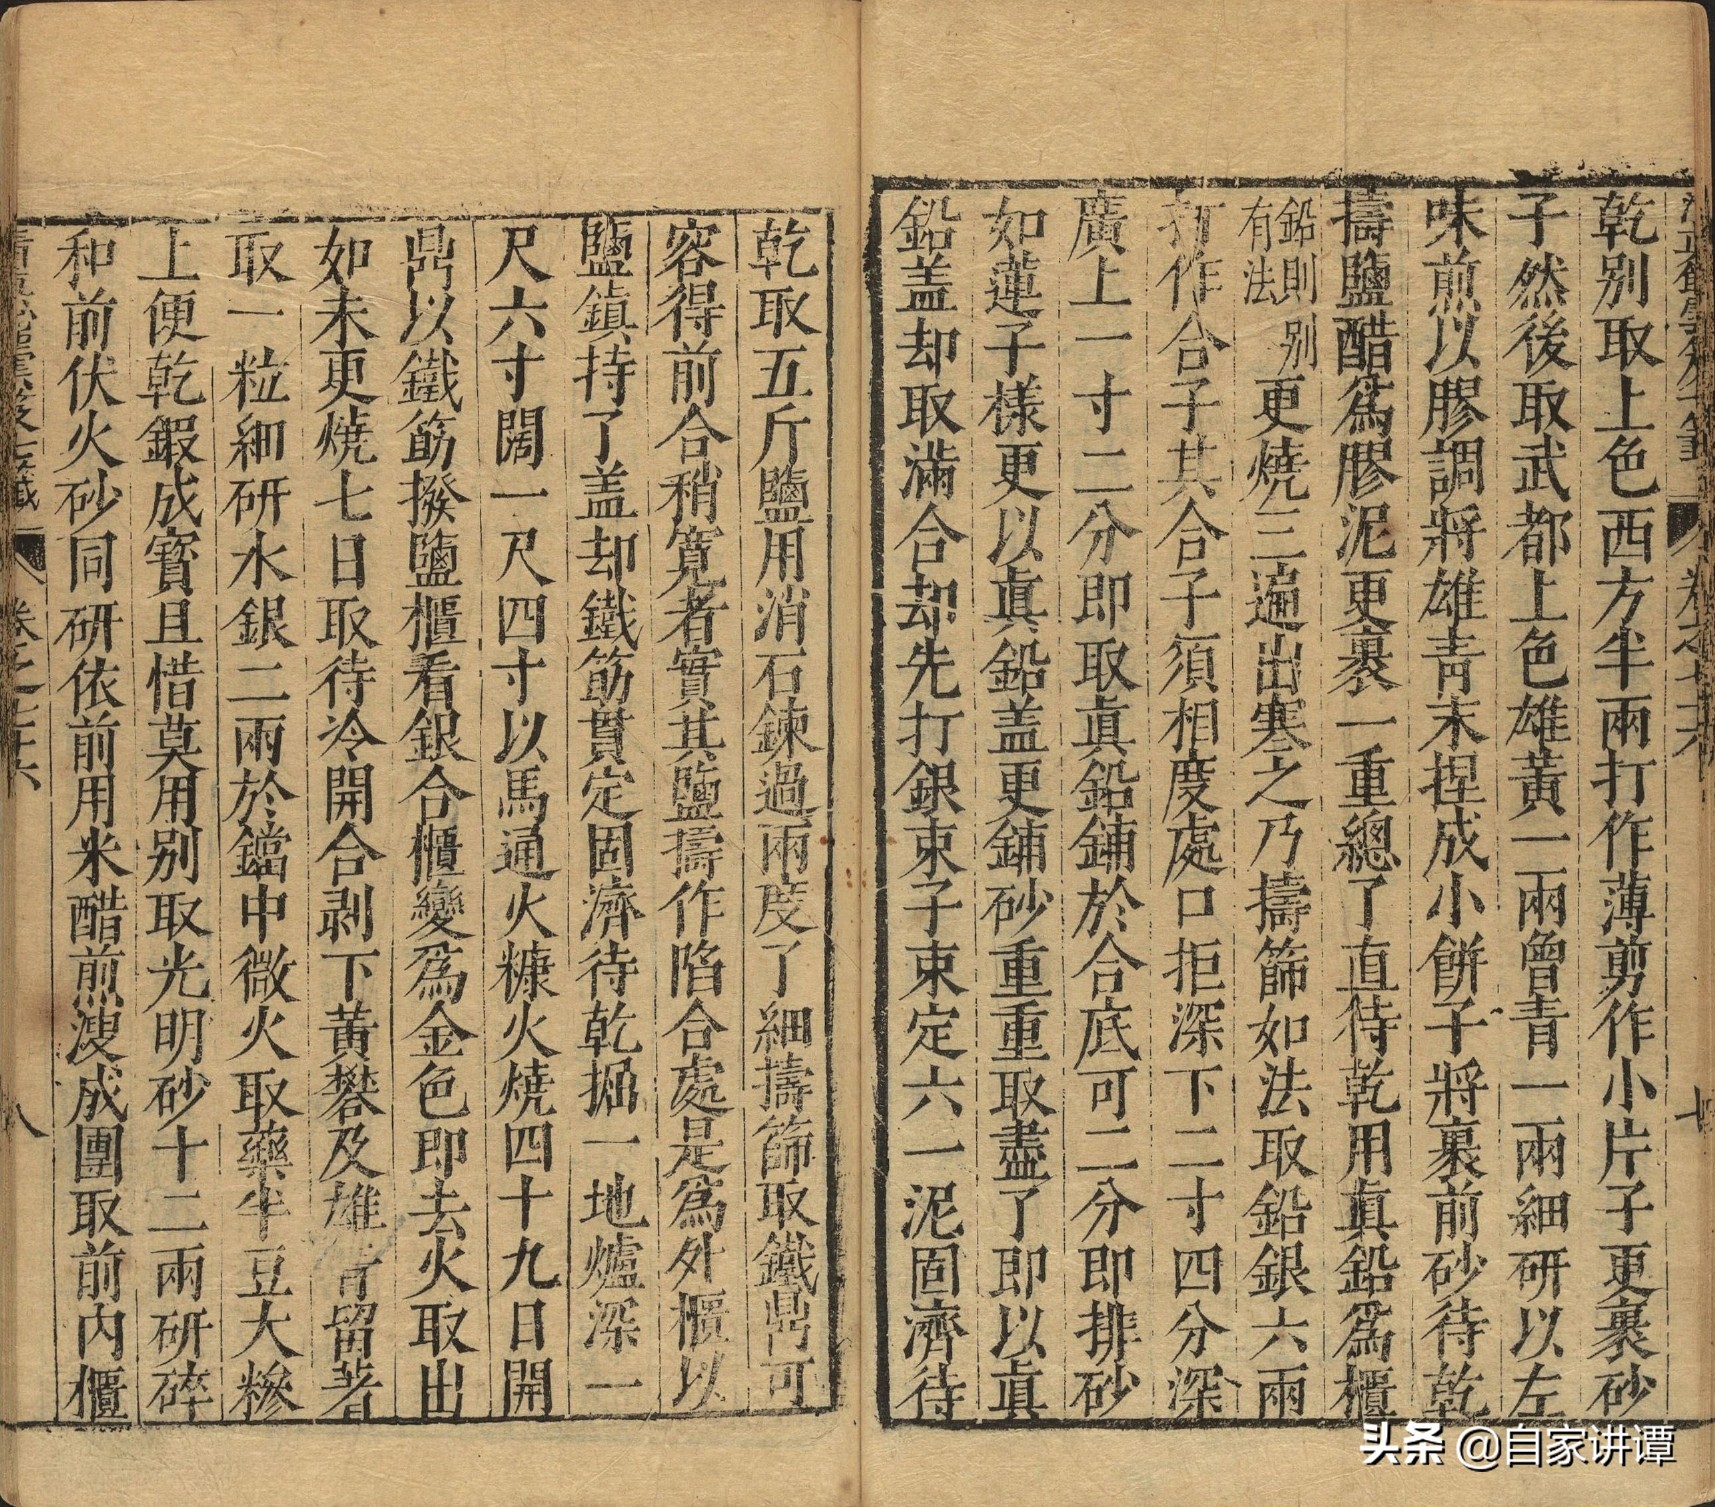 乾别取上色西方半兩打作薄剪作小片子更裹砂
子然後取武都上色雄黃一兩曾青一兩細研以左
味煎以膠調將雄青末捏成小餅子將裹前砂待乾
擣鹽醋爲膠泥更裹一重總了直待乾用眞鉛爲櫃
鉛則別有法更燒三遍出寒之乃擣篩如法取鉛銀六兩
打作合子其合子須相度處口拒深下二寸四分深
廣上一寸二分即取眞鉛鋪於合底可二分即排砂
如蓮子樣更以眞鉛盖更鋪砂重重取盡了即以眞
鉛盖却取滿合却先打銀束子束定六一泥固濟待
乾取五斤鹽用消石鍊過兩度了細擣篩取鐵鼎可
容得前合稍寬者實其鹽擣作陷合處是爲外櫃以
鹽鎮持了盖却鐵筯貫定固濟待乾掘一地爐深一
尺六寸闊一尺四寸以馬通火糠火燒四十九日開
鼎以鐵筯撥鹽櫃看銀合櫃變爲金色即去火取出
如未更燒七日取待冷開合剥下黃礬及雄青留著
取一粒細研水銀二兩於鐺中微火取藥半豆大糝
上便乾鍜成寳且惜莫用别取光明砂十二兩研碎
和前伏火砂同研依前用米醋煎溲成團取前内櫃
卷之七十六
八
头条 @自家讲谭